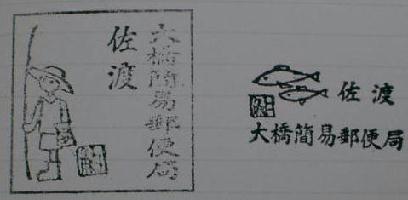 大橋簡易郵便局
佐渡
佐渡
大橋簡易郵便局